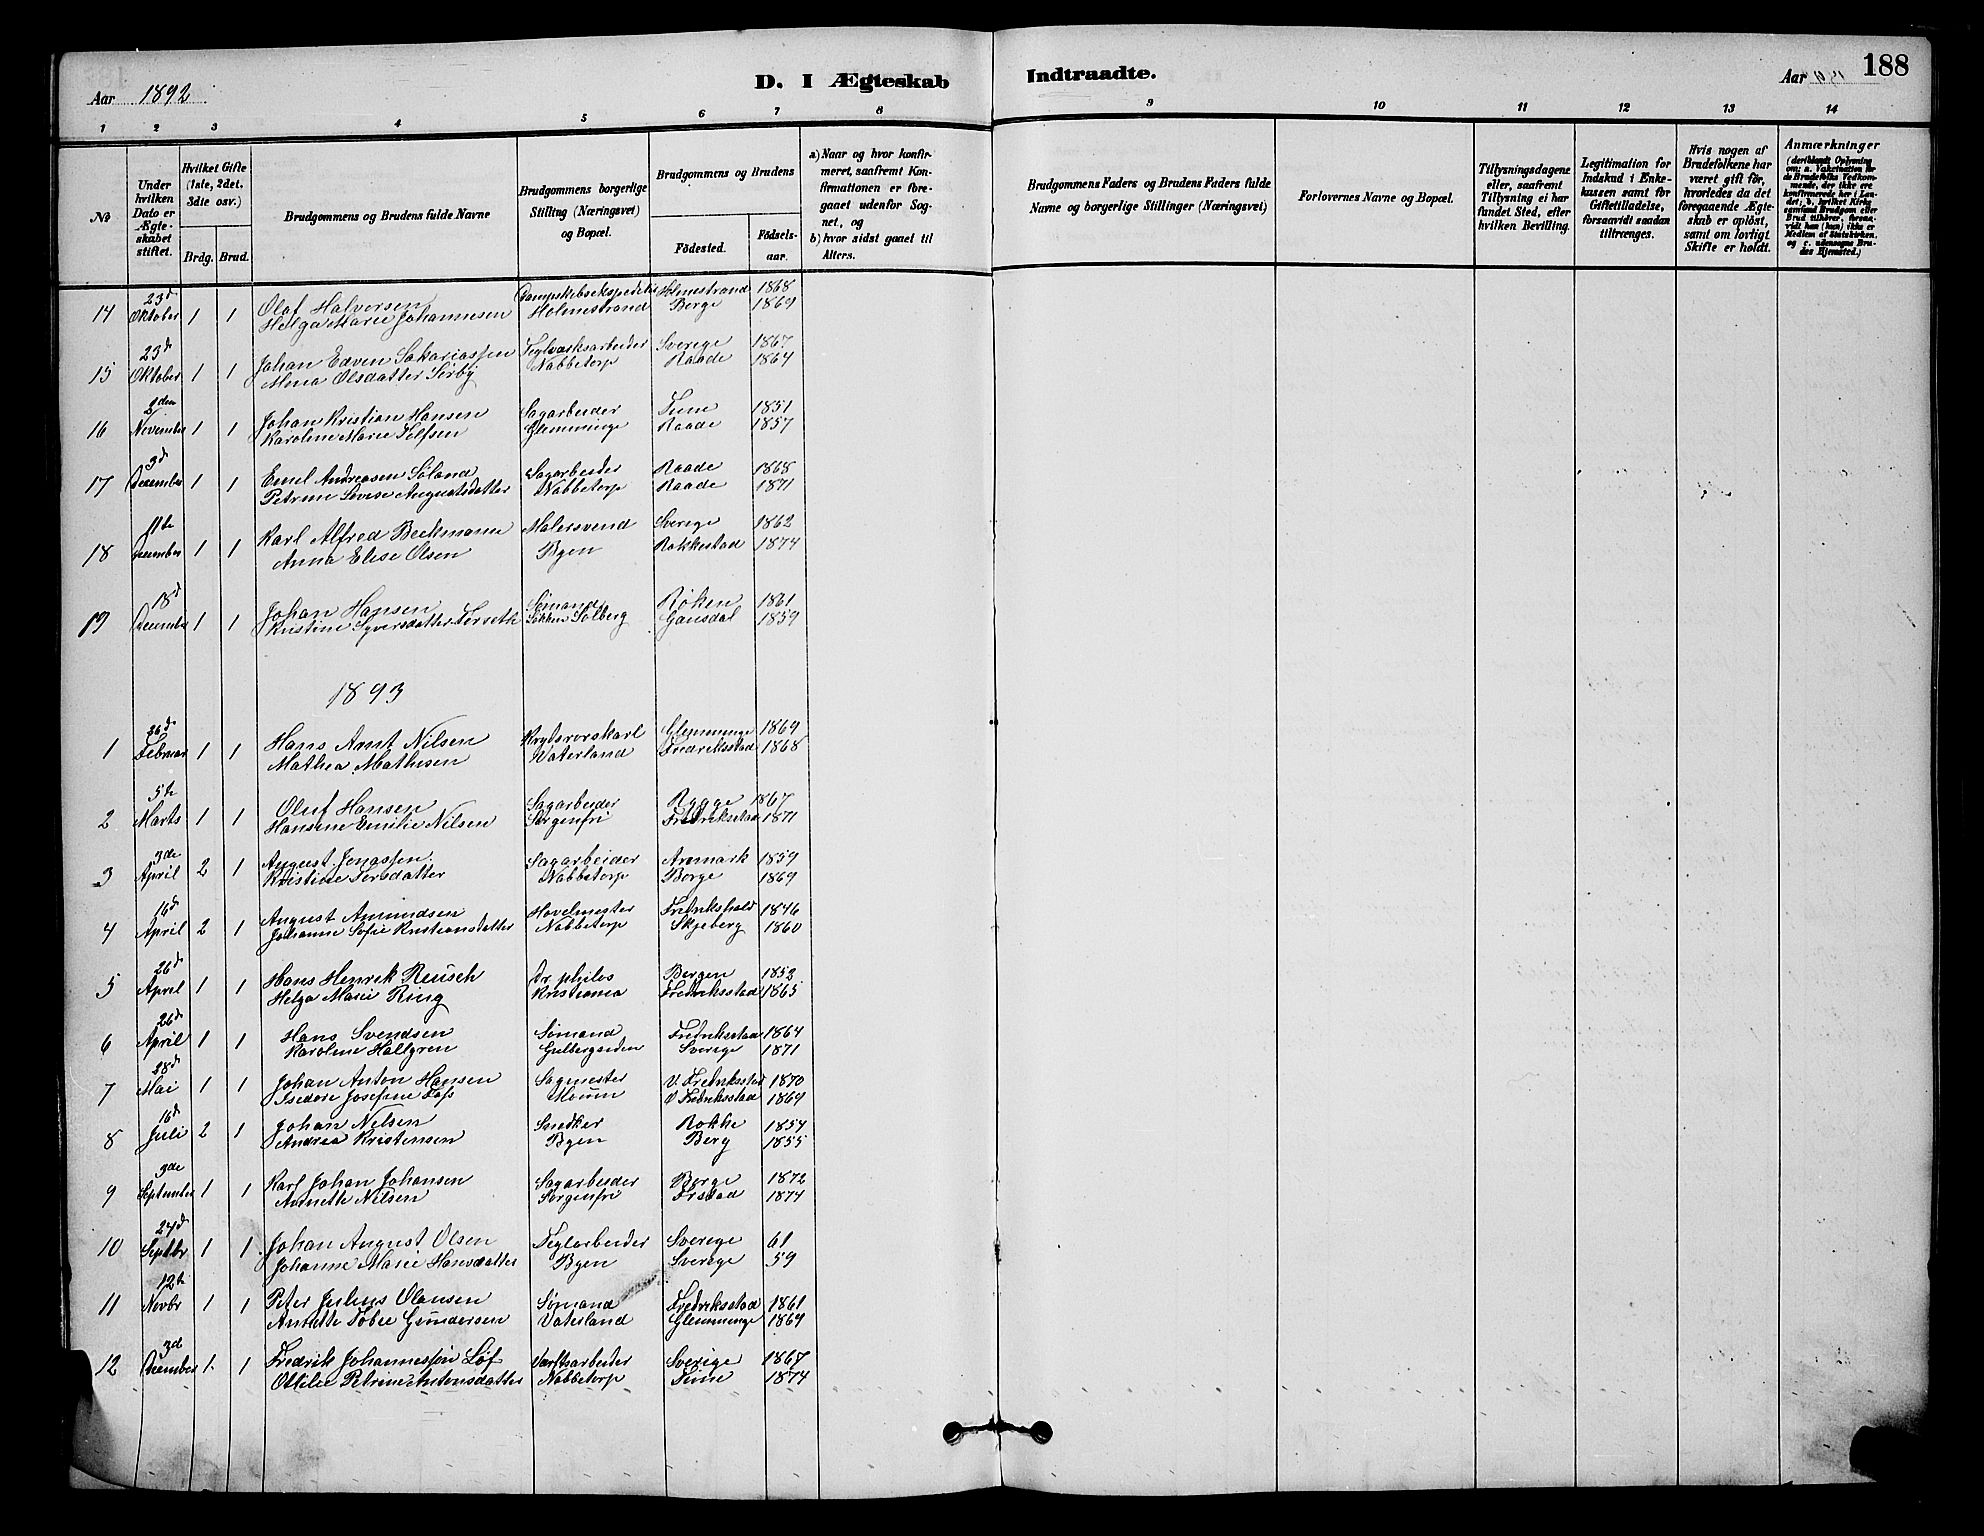 D. I Ægteskab Indtraadte. 188
Aar 1892. Aar
1 2 3 4 5 6 7 8 9 10 11 12 13 14
No
Under hvilken Dato er Ægteskabet stiftet.
Hvilket Gifte (1ste, 2det. 3die osv.)
Brdg. Brud.
Brudgommens og Brudens fulde Navne
Brudgommens borgerlige Stilling (Næringsvei) og Bopæl.
Brudgommens og Brudens
Fødested. Fødselsaar.
a) Naar og hvor konfirmeret, saafremt Konfirmationen er foregaaet udenfor Sognet, og
b) hvor sidst gaaet til Alters.
Brudgommens Faders og Brudens Faders fulde Navne og borgerlige Stillinger (Næringsvei)
Forlovernes Navne og Bopæl.
Tillysningsdagene eller, saafremt Tillysning ei har fundet Sted, efter hvilken Bevilling.
Legitimation for Indskud i Enkekassen samt for Giftetilladelse, forsaavidt saadan tiltrænges.
Hvis nogen af Brudefolkene har været gift før, hvorledes da det foregaaende Ægteskab er opløst, samt om lovligt Skifte er holdt.
Anmærkninger
(deriblandt Oplysning om: a. Vakcination for de Brudefolks Vedkommende, der ikke ere konfirmerede her i Landet; b. hvilket Kirkesamfund Brudgom eller Brud tilhører, forsaavidt han (hun) ikke er Medlem af Statskirken, og c. udensogns Brudes Hjemsted.)
14 23d Oktober 1 1 Olaf Halversen Dampskibsekspeditør Holmestrand 1868
Helga Marie Johannesen Holmestrand Borge 1869
15 23d Oktober 1 1 Johan Edven Sakariassen Teglværksarbeider Sverige 1867
Mina Olsdatter Nabbetorp Raade 1864
16 2den November 1 1 Johan Kristian Hansen Sagarbeider Tune 1851
Karoline Marie Glemminge Raade 1857
17 3d December 1 1 Emil Andreasen Søland Sagarbeider Raade 1868
Petrine Lovise Augustsdatter Nabbetorp Raade 1871
18 11te December 1 1 Karl Alfred Beckmann Malersvend Sverige 1862
Anna Elise Olsen Byen Rakkestad 1874
19 18d December 1 1 Johan Hansen Sømand Røken 1861
Kristine Syversdatter Sølberg 1859
1893
1 26d Februar 1 1 Hans Arnt Nilsen Glemminge 1869
Mathea Mathisen Vaterland Fredriksstad 1868
2 5te Marts 1 1 Oluf Hansen Sagarbeider Rygge 1867
Hansine Emilie Nilsen Sorgenfri Fredriksstad 1871
3 3de April 2 1 August Jonassen Sagarbeider Aremark 1859
Kristine Nabbetorp Borge 1869
4 16d April 2 1 August Amundsen Høvelmester Fredrikshald 1846
Johanne Sofie Kristiansdatter Nabbetorp Skjeberg 1860
5 26d April 1 1 Hans Henrik Reusch Dr philos Bergen 1852
Helga Marie Ring Kristiania Fredriksstad 1865
6 26d April 1 1 Hans Svendsen Sømand Fredriksstad 1864
Karoline Hallgren Sverige 1871
7 28d Mai 1 1 Johan Anton Hansen Sagmester V. Fredriksstad 1870
Isedore Josefine V Fredriksstad 1869
8 16d Juli 2 1 Johan Nilsen Snedker Rokke 1854
Andrea Kristensen Byen Berg 1855
9 3de September 1 1 Karl Johan Johansen Sagarbeider Borge 1872
Annette Nilsen Sorgenfri Frstad 1874
10 24d Septbr 1 1 Johan August Olsen Teglarbeider Sverige 61
Johanne Marie Hansdatter Byen Sverige 59
11 12te Novbr 1 1 Peter Julius Olausen Sømand Fredriksstad 1861
Gundersen Vaterland Glemminge 1869
12 3d December 1 1 Fredrik Johannessøn Løf Værftsarbeider Sverige 1867
Ottilie Petrine Antonsdatter Nabbetorp Tune 1874